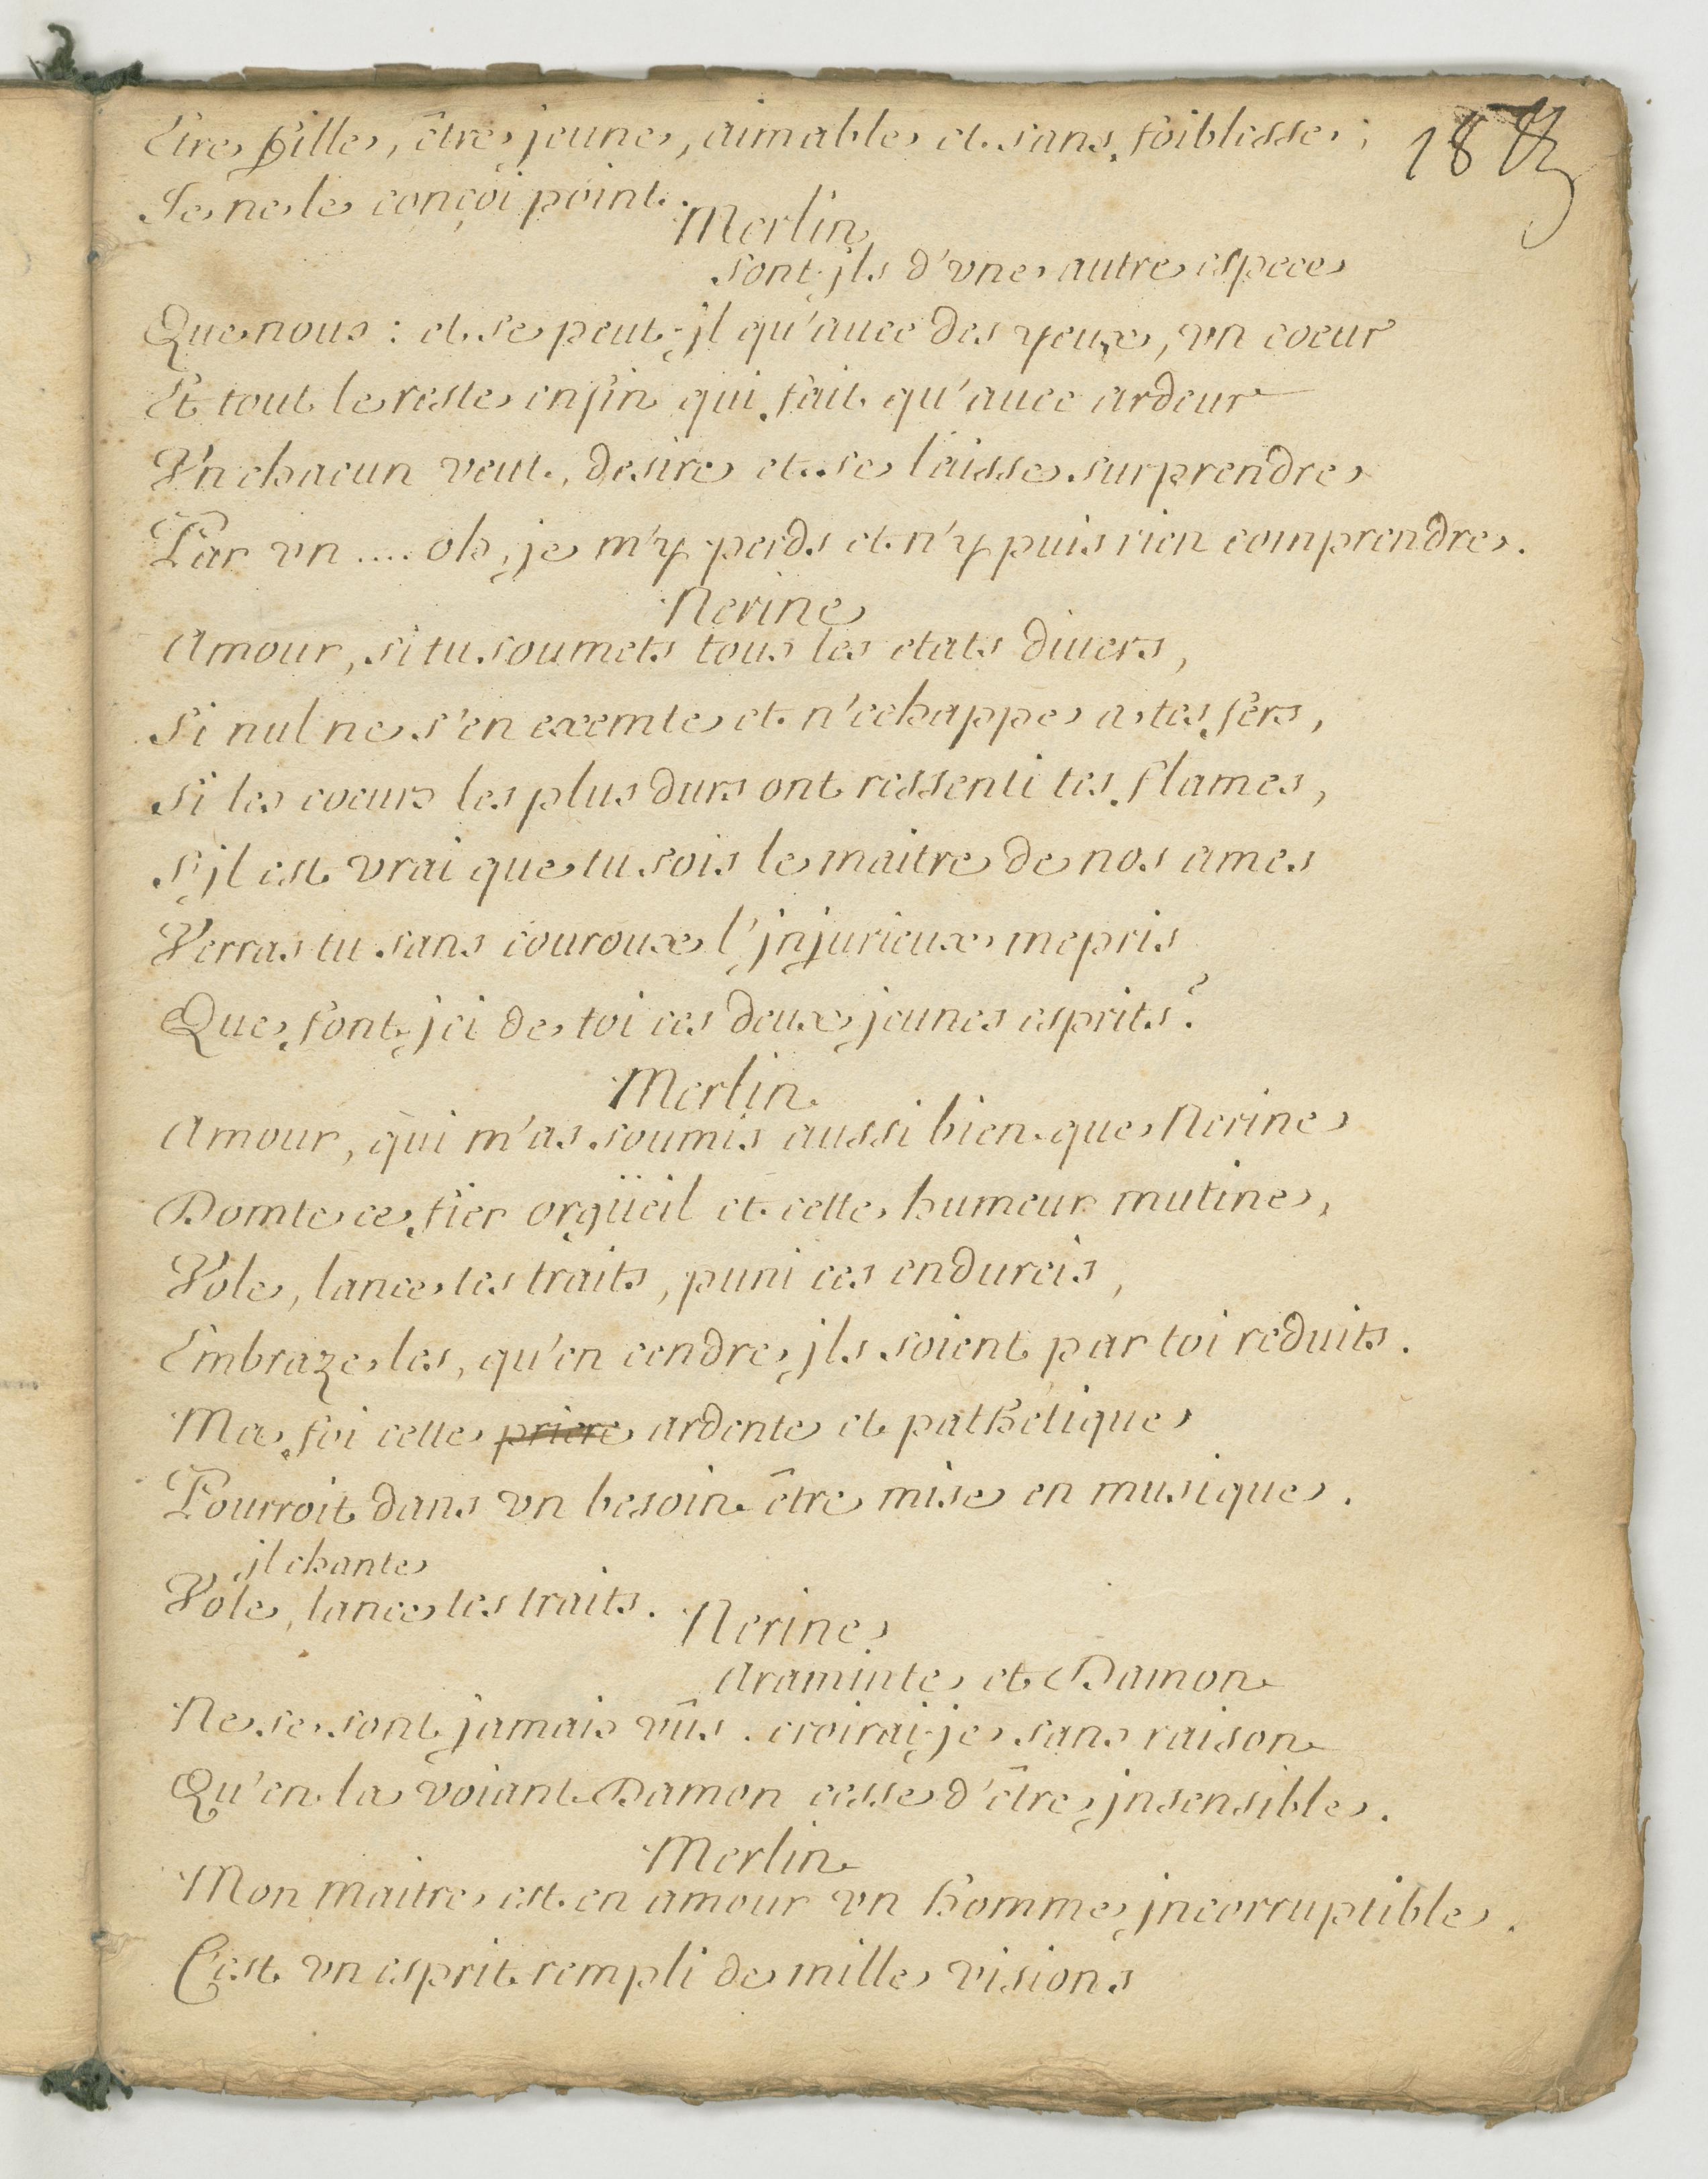 Etre fille, être jeune, aimable et sans foiblesse;
Je ne le conçoi point.
Merlin
sont jls d'vne autre espece
Que nous : et se peut-jl qu'auec des yeux, vn coeur
Et tout le reste enfin qui fait qu'auec ardeur
Vn chacun veut, desire et se laisse surprendre
Par vn .... oh, je m'y perds et n'y puis rien comprendre.
Nerine
Amour, si tu soumets tous les etats diuers,
Si nul ne s'en exemte et n'echappe a tes fers,
Si les coeurs les plus durs ont ressenti tes flames,
S'jl est vrai que tu sois le maitre de nos ames
Verras tu sans couroux l'jnjurieux mepris
Que font jci de toi ces deux jeunes esprits?
Merlin
Amour, qui m'as soumis aussi bien que Nerine
Domte ce fier orgüeil et cette humeur mutine,
Vole, lance tes traits, puni ces endurcis,
Embraze les, qu'en cendre jls soient par toi reduits.
Ma foi cette priere ardente et pathetique
Pourroit dans vn besoin être mise en musique.
jl chante
Vole, lance tes traits.
Nerine
Araminte et Damon
Ne se sont jamais vûs. croirai-je sans raison
Qu'en la voiant Damon cesse d'être jnsensible.
Merlin
Mon maitre est en amour vn homme jncorruptible.
C'est vn esprit rempli de mille visions